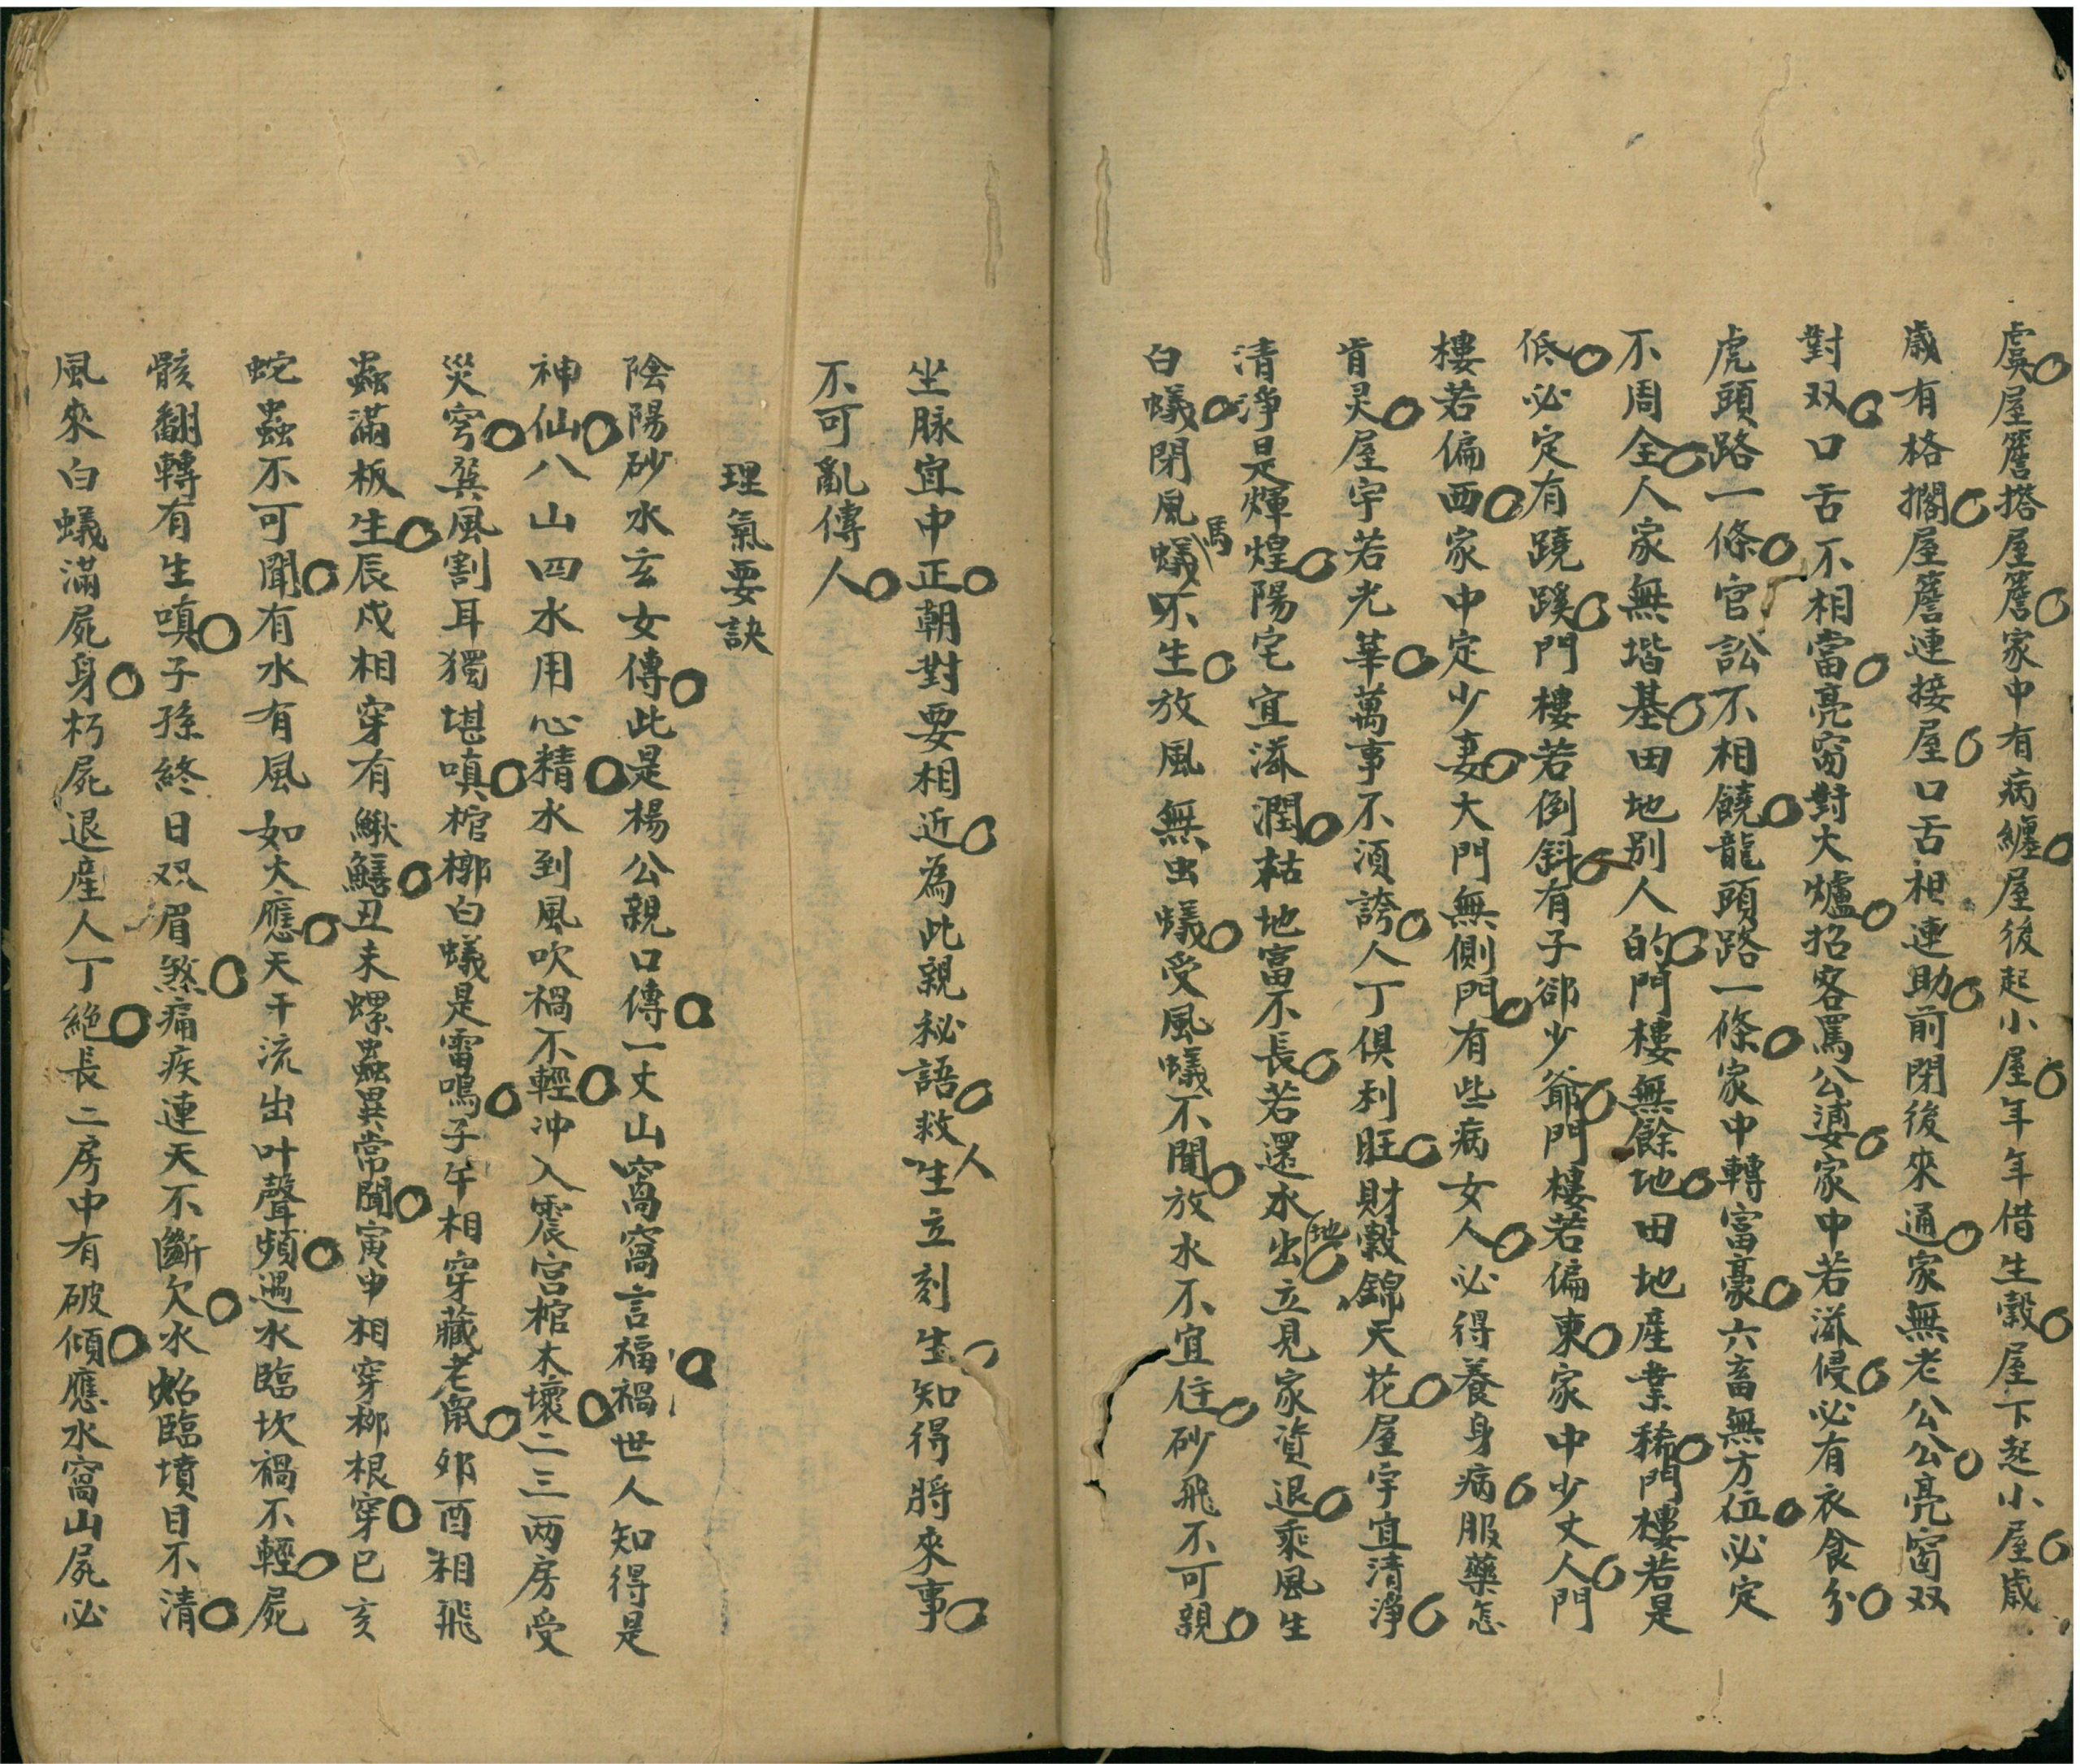 虞屋簷搭屋簷家中有病纏屋後起小屋年年借生穀屋下起小屋歳
歳有格擱屋簷連接屋口舌相連助前閉後來通家無老公公亮窗双
對双口舌不相當亮窗對大爐招客罵公婆家中若滋侵必有衣食分
虎頭路一條官訟不相饒龍頭路一條家中轉富豪六畜無方位必定
不周全人家無堦基田地别人的門樓無餘地田地産業稀門樓若是
低必定有蹺蹊門樓若倒斜有子郤少爺門樓若偏東家中少丈人門
樓若偏西家中定少妻大門無側門有些病女人必得養身病服藥怎
肯灵屋宇若光華萬事不須誇人丁俱利旺財穀錦天花屋宇宜清淨
清淨是煇煌陽宅宜滋潤枯地富不長若還水出地立見家資退乘風生
白蟻閉風馬蟻不生放風無虫蟻受風蟻不聞放水不宜住砂飛不可親
坐脉宜中正朝對要相近為此親祕語救人生立刻生知得將來事
不可亂傳人
理氣要訣
陰陽砂水玄女傳此是楊公親口傳一丈山窩窩言福禍世人知得是
神仙八山四水用心精水到風吹禍不輕冲入震宫棺木壞二三两房受
災穹巽風割耳獨堪嗔棺槨白蟻是雷鳴子午相穿藏老鼠夘酉相飛
蟲滿板生辰戍相穿有鰍鱔丑未螺蟲異常聞寅申相穿柳根穿巳亥
蛇蟲不可聞有水有風如大應天干流出叶聲頻遇水臨坎禍不輕屍
骸翻轉有生嗔子孫終日双眉煞痛疾連天不斷欠水臨墳目不清
風來白蟻滿屍身朽屍退産人丁絶長二房中有破傾應水窩山屍必